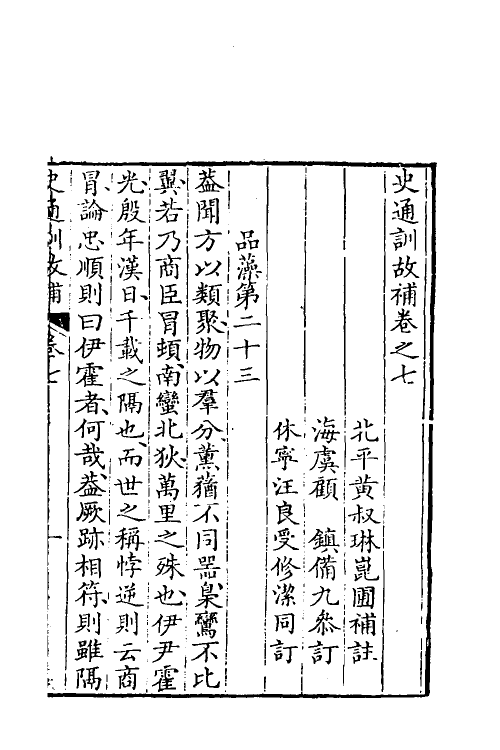 史通訓故補卷之七
北平黃叔琳崑圃補註
海虞顧　鎮備九叅訂
休寧汪良受修潔同訂
品藻第二十三
葢聞方以類聚物以羣分薰蕕不同器梟鸞不比
翼若乃商臣冒頓南蠻北狄萬里之殊也伊尹霍
光殷年漢日千載之隔也而世之稱悖逆則云商
冒論忠順則曰伊霍者何哉葢厥跡相符則雖隔
史通訓故補　卷七　一